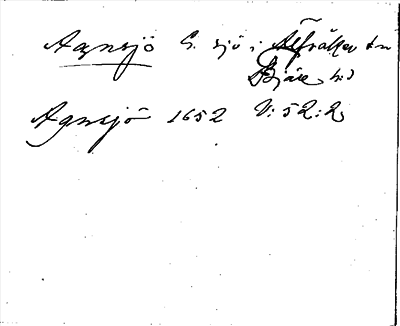 Agnsjö G. sjö i Alfrälken sn
Bjäre hd
Agnsjö 1652 V: 52: 2